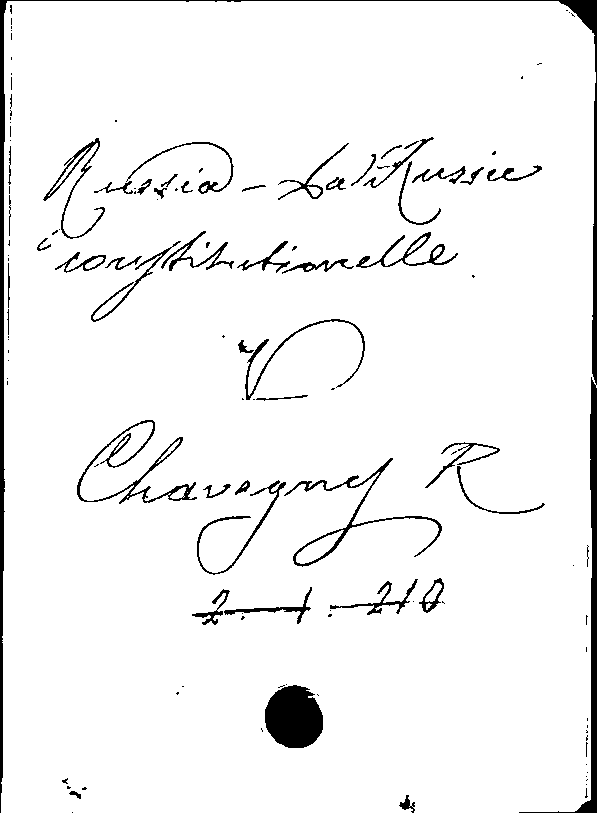 Russia - La Russie
constitutionelle
V
Chavegny R
2. 1. 210